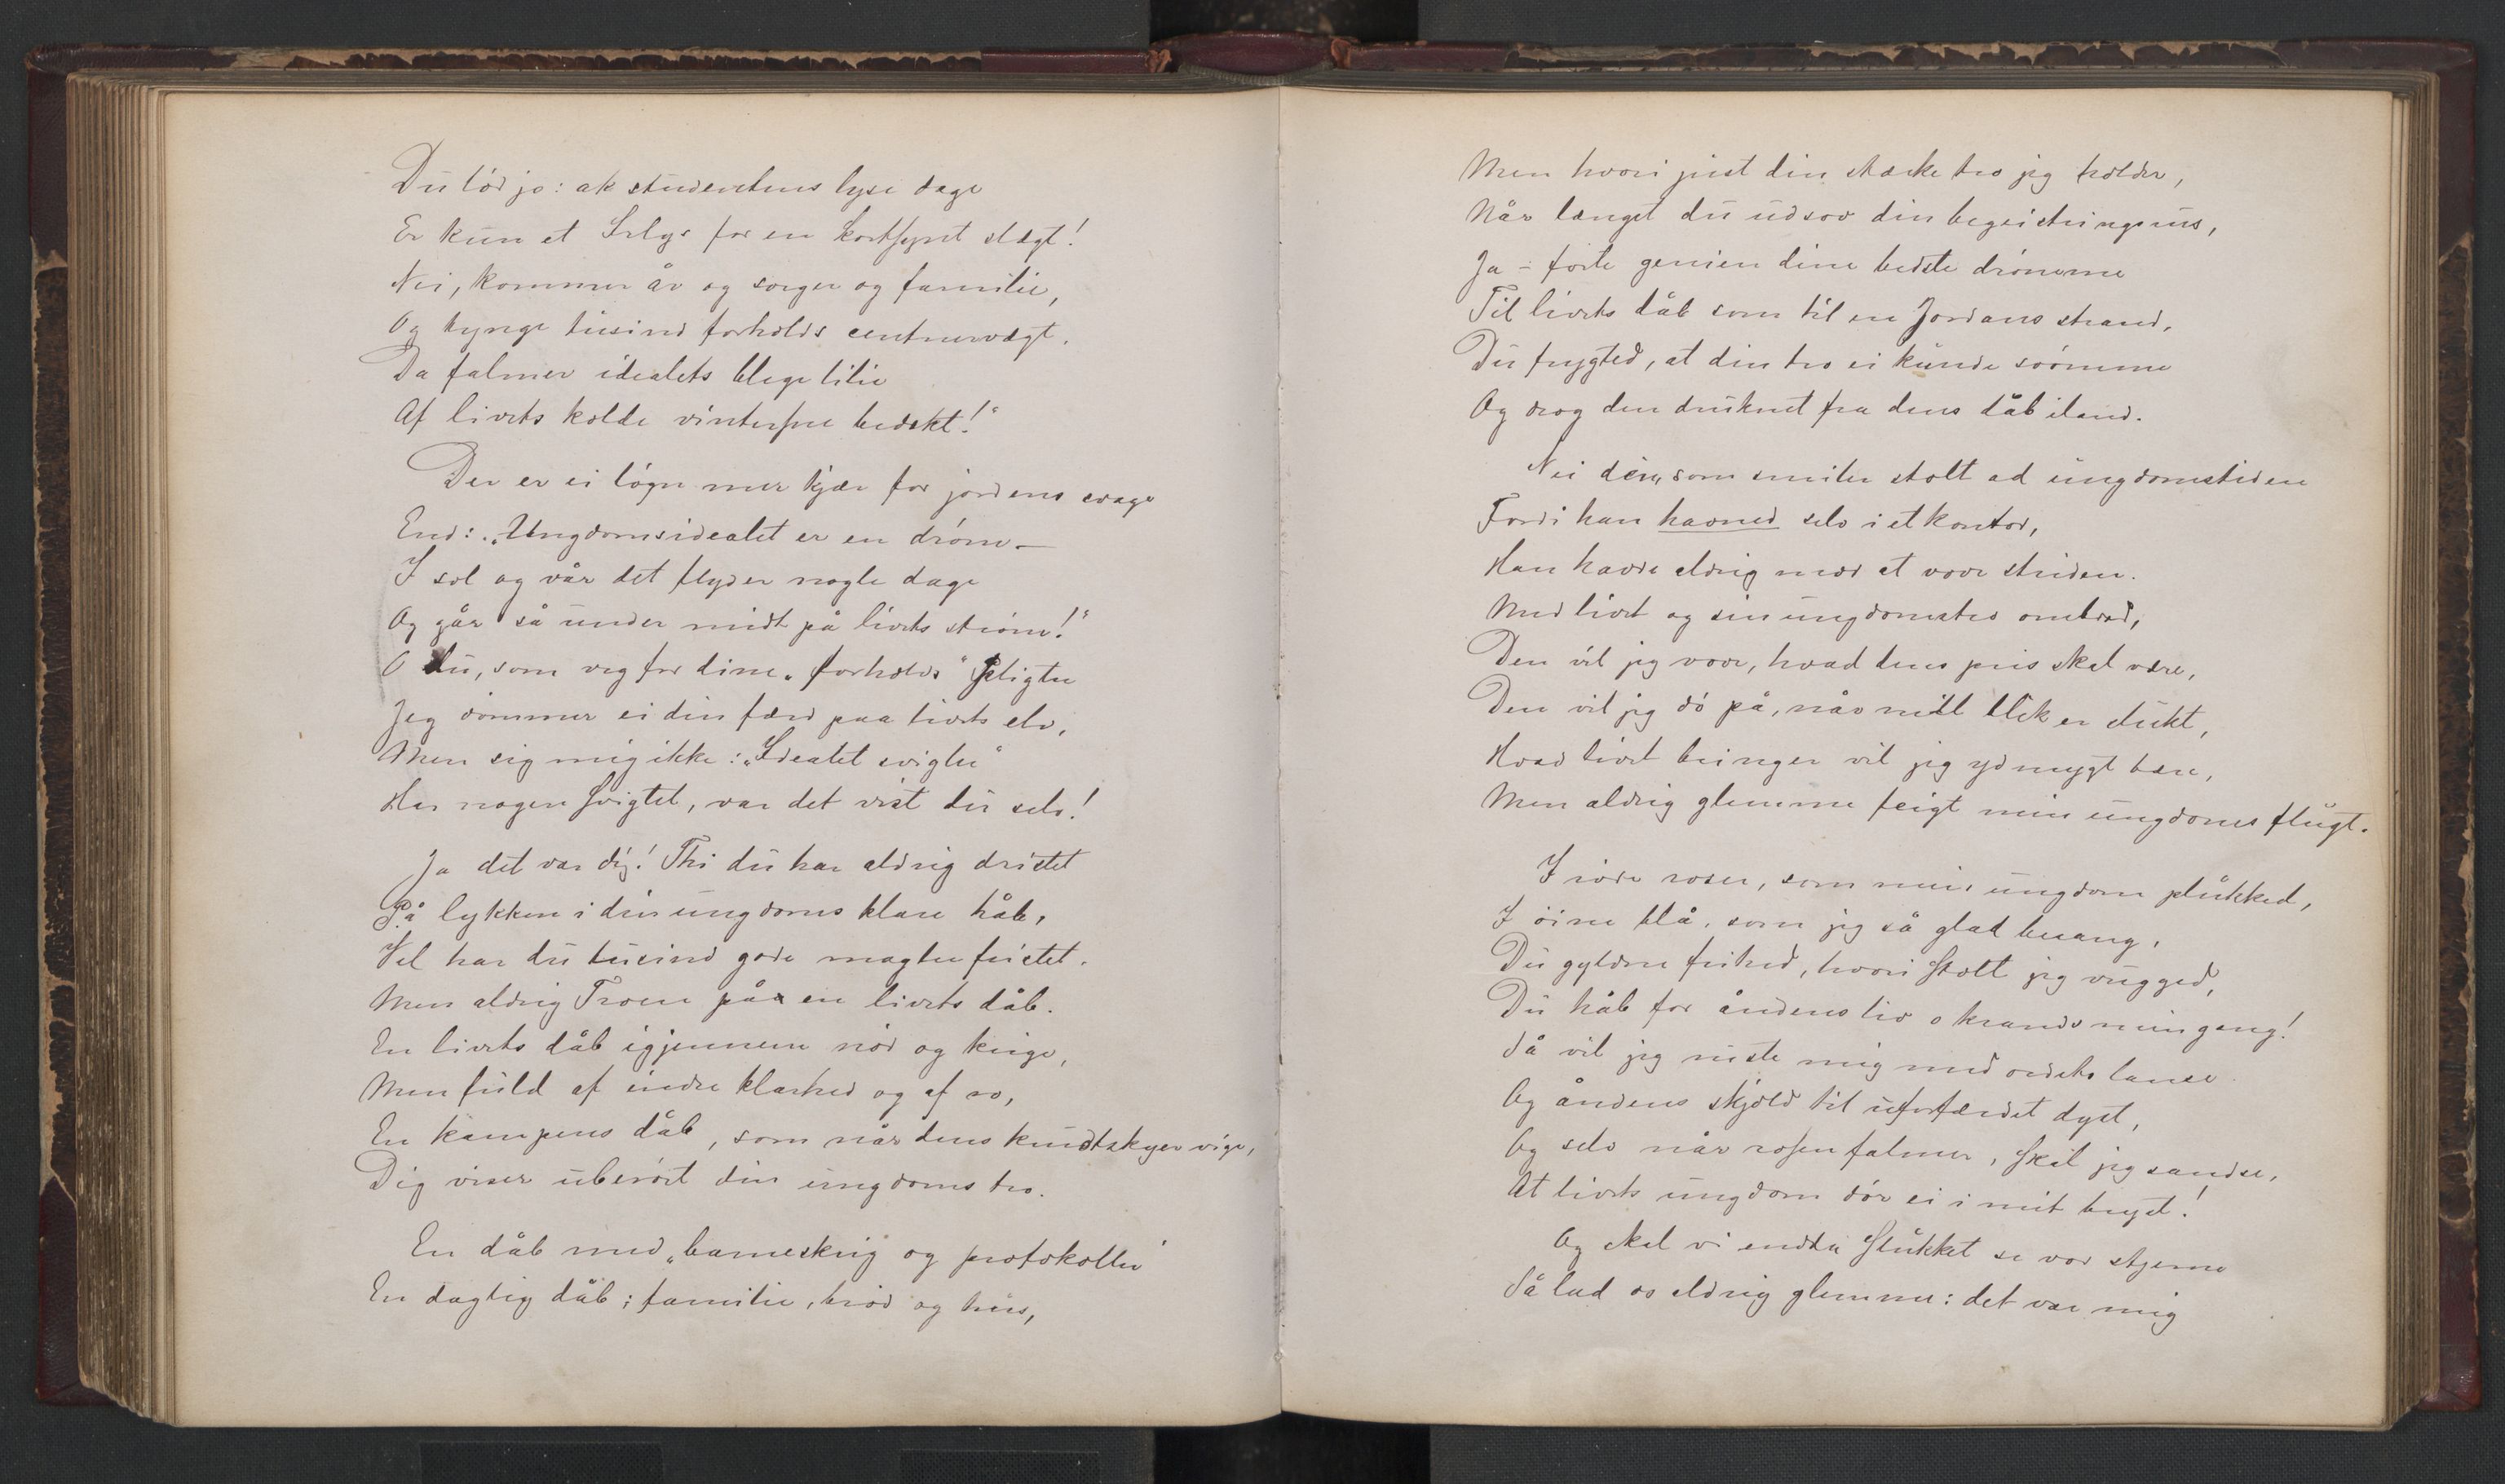 Du lód jo: ak studentens lyse dage
Er kun et Irlys for en kortsynt slægt!
Nei, kommer år og sorger og familie,
Og tynge tusind forholds centnervægt.
Da falmer idealets blege lilie
Af livets kolde vintersne bedækt!"
Der er ei lógn mer kjær for jordens svage
End: "Ungdomsidealet er en dróm –
I sol og vår det flyder nogle dage
Og går så under midt på livets stróm!"
O du, som veg for dine "forholds" pligter
Jeg dómmer ei din færd paa livets elv,
Men sig mig ikke: "Idealet svigter"
Har nogen svigtet, var det vist du selv!
Ja det var dig! Thi du har aldrig dristet
På lykken i din ungdoms klare håb,
Vel har du tusind gode magter fristet.
Men aldrig Troen på en livets dåb.
En livets dåb igjennem nód og krige,
Men fuld af indre klarhed og af ro,
En kampens dåb, som når dens krudtskyer vige,
Dig viser uberórt din ungdoms tro.
En dåb med "barneskrig og protokoller"
En daglig dåb; familie, bród og hus,
Men hvori just din stærke tro jeg holder,
Når længst du udsov din begeistringsrus,
Ja – fórte genien dine bedste drómme
Til livets dåb som til en Jordans strand,
Du frygted, at din tro ei kunde svómme
Og drog den druknet fra dens dåb iland.
Nei den, som smiler stolt ad ungdomstiden
Fordi han havned selv i et kontor,
Han havde aldrig mod at vove striden.
Med livet og sin ungdomstro ombord,
Den vil jeg vove, hvad dens pris skal være,
Den vil jeg dó på, når mit blik er slukt,
Hvad livet bringer vil jeg ydmygt bære,
Men aldrig glemme feigt min ungdoms flugt.
I róde roser, som min ungdom plukked,
I óine blå, som jeg så glad besang,
Du gyldne frihed, hvori stolt jeg vugged,
Du håb for åndens liv o krands min gang!
Så vil jeg ruste mig med ordets lanse
Og åndens skjold til uforfærdet dyst,
Og selv når rosen falmer, skal jeg sandse,
At livets ungdom dór ei i mit bryst!
Og skal vi endda slukket se vor stjerne
Så lad os aldrig glemme: det var mig